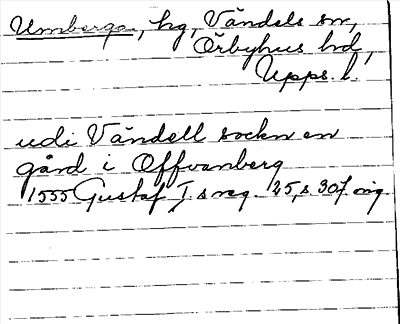 Umberga, hg, Vändels sn,
Örbyhus hd,
Upps. l.
udi Vändell sockn en
gård i Offvanberg
1555 Gustaf I,s reg. 25, s. 307. orig.